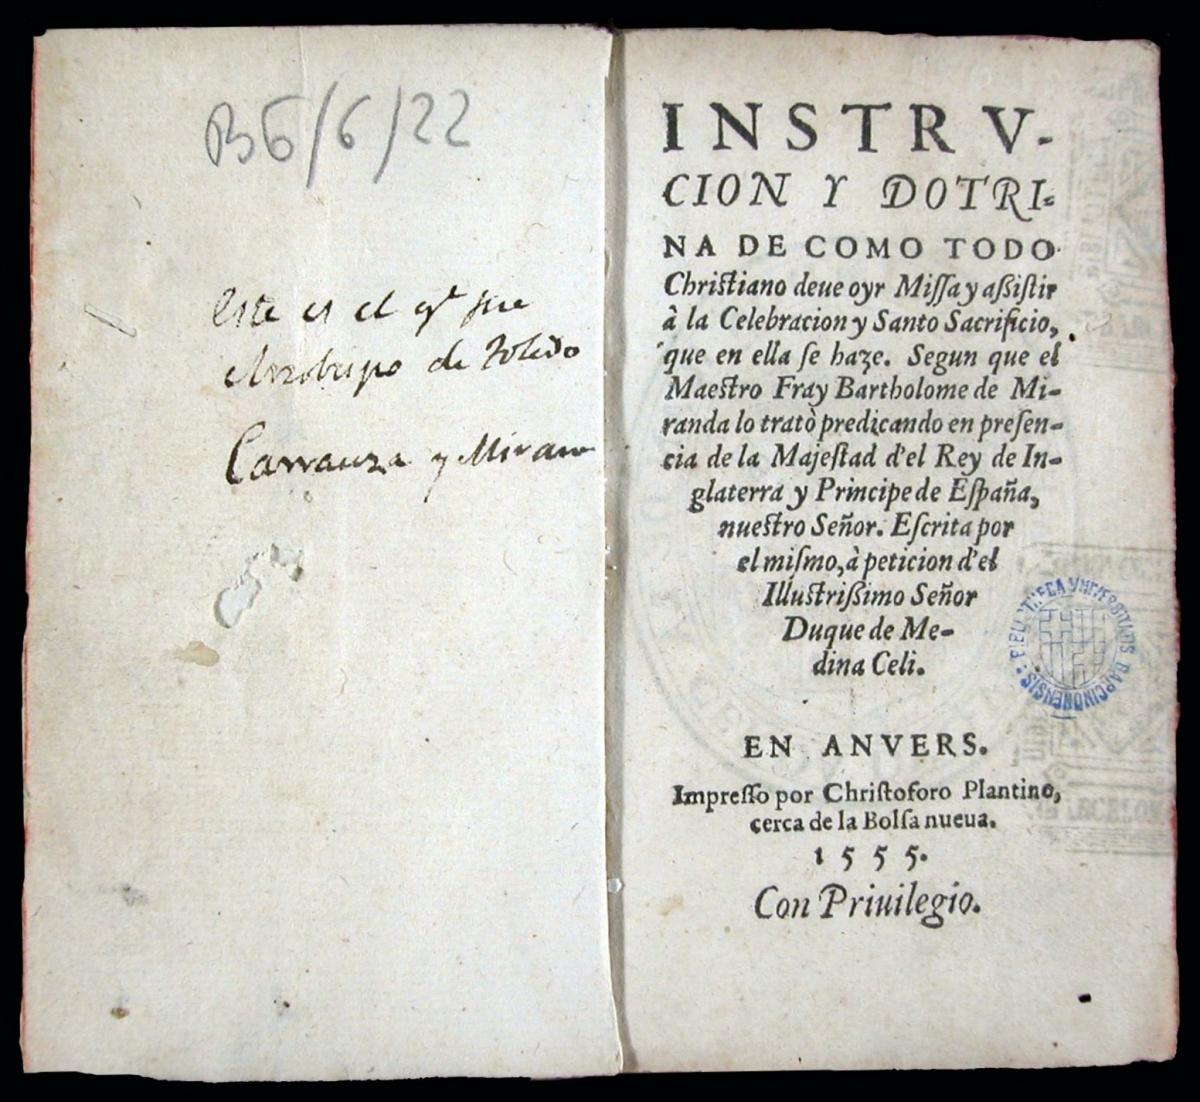 B6/6/22
Este es el q̃ fue
Arzobispo de Toledo
Carranza y Miran
INSTRV-
CION Y DOTRI-
NA DE COMO TODO
Chriſtiano deue oyr Miſſa y aßiſtir
à la Celebracion y Santo Sacrificio,
que en ella ſe haze. Segun que el
Maeſtro Fray Bartholome de Mi-
randa lo tratò predicando en preſen-
cia de la Majeſtad d'el Rey de In-
glaterra y Principe de Eſpaña,
nueſtro Señor. Eſcrita por
el miſmo, à peticion d'el
Illuſtrißimo Señor
Duque de Me-
dina Celi.
EN ANVERS.
Impreſſo por Chriſtoforo Plantino,
cerca de la Bolſa nueua.
1555.
Con Priuilegio.
BIBLIOTHECA VNIVERSITATIS BARCINONENSIS